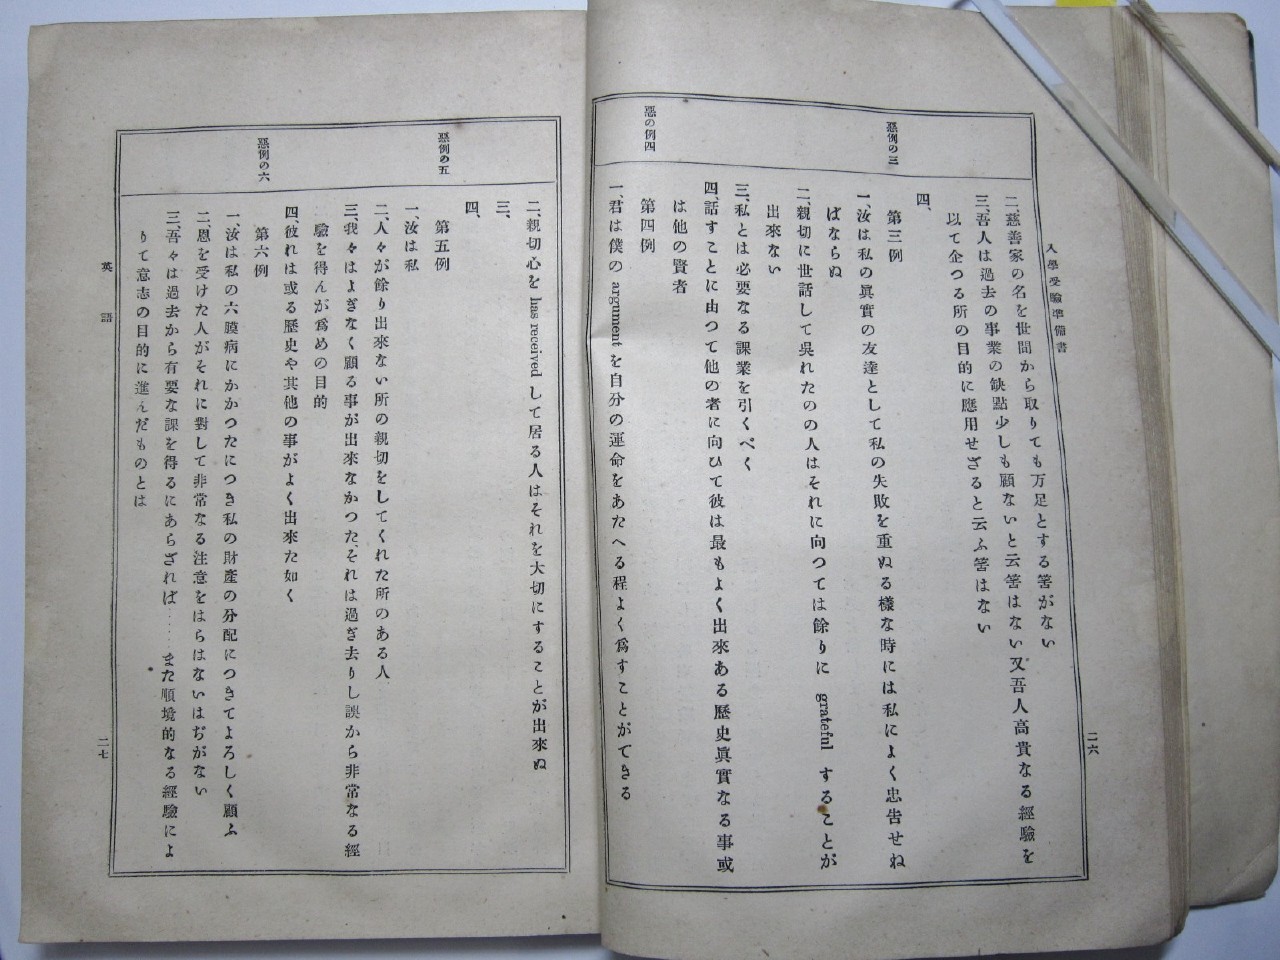 入學受驗準備書
二六
惡例の三
惡の例四
二、慈善家の名を世間から取りても万足とする筈がない
三、吾人は過去の事業の缺點少しも顧ないと云筈はない又吾人高貴なる經驗を
以て企つる所の目的に應用せざると云ふ筈はない
四、
第三例
一、汝は私の眞實の友達として私の失敗を重ぬる樣な時には私によく忠告せね
ばならぬ
二、親切に世話して呉れたのの人はそれに向つては餘りに grateful することが
出來ない
三、私とは必要なる課業を引くべく
四、話すことに由つて他の者に向ひて彼は最もよく出來ある歷史眞實なる事或
は他の賢者
第四例
一、君は僕の argument を自分の運命をあたへる程よく爲すことができる
惡例の五
惡例の六
二、親切心を has received して居る人はそれを大切にすることが出來ぬ
三、
四、
第五例
一、汝は私
二、人々が餘り出來ない所の親切をしてくれた所のある人
三、我々はよぎなく顧る事が出來なかつた、それは過ぎ去りし誤から非常なる經
驗を得んが爲めの目的
四、彼れは或る歷史や其他の事がよく出來た如く
第六例
一、汝は私の六膜病にかかつたにつき私の財產の分配につきてよろしく願ふ
二、恩を受けた人がそれに對して非常なる注意をはらはないはぢがない
三、吾々は過去から有要な課を得るにあらざれば……また順境的なる經驗によ
りて意志の目的に進んだものとは
英語
二七